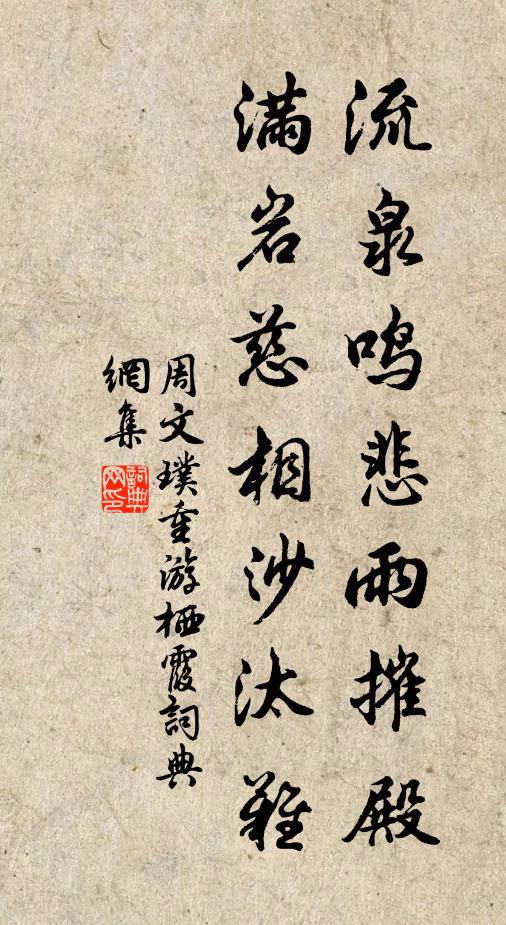 流泉鸣悲雨摧殿
满岩慈相沙汰难
周文璞重游栖霞詞典
網集
詞典
网印